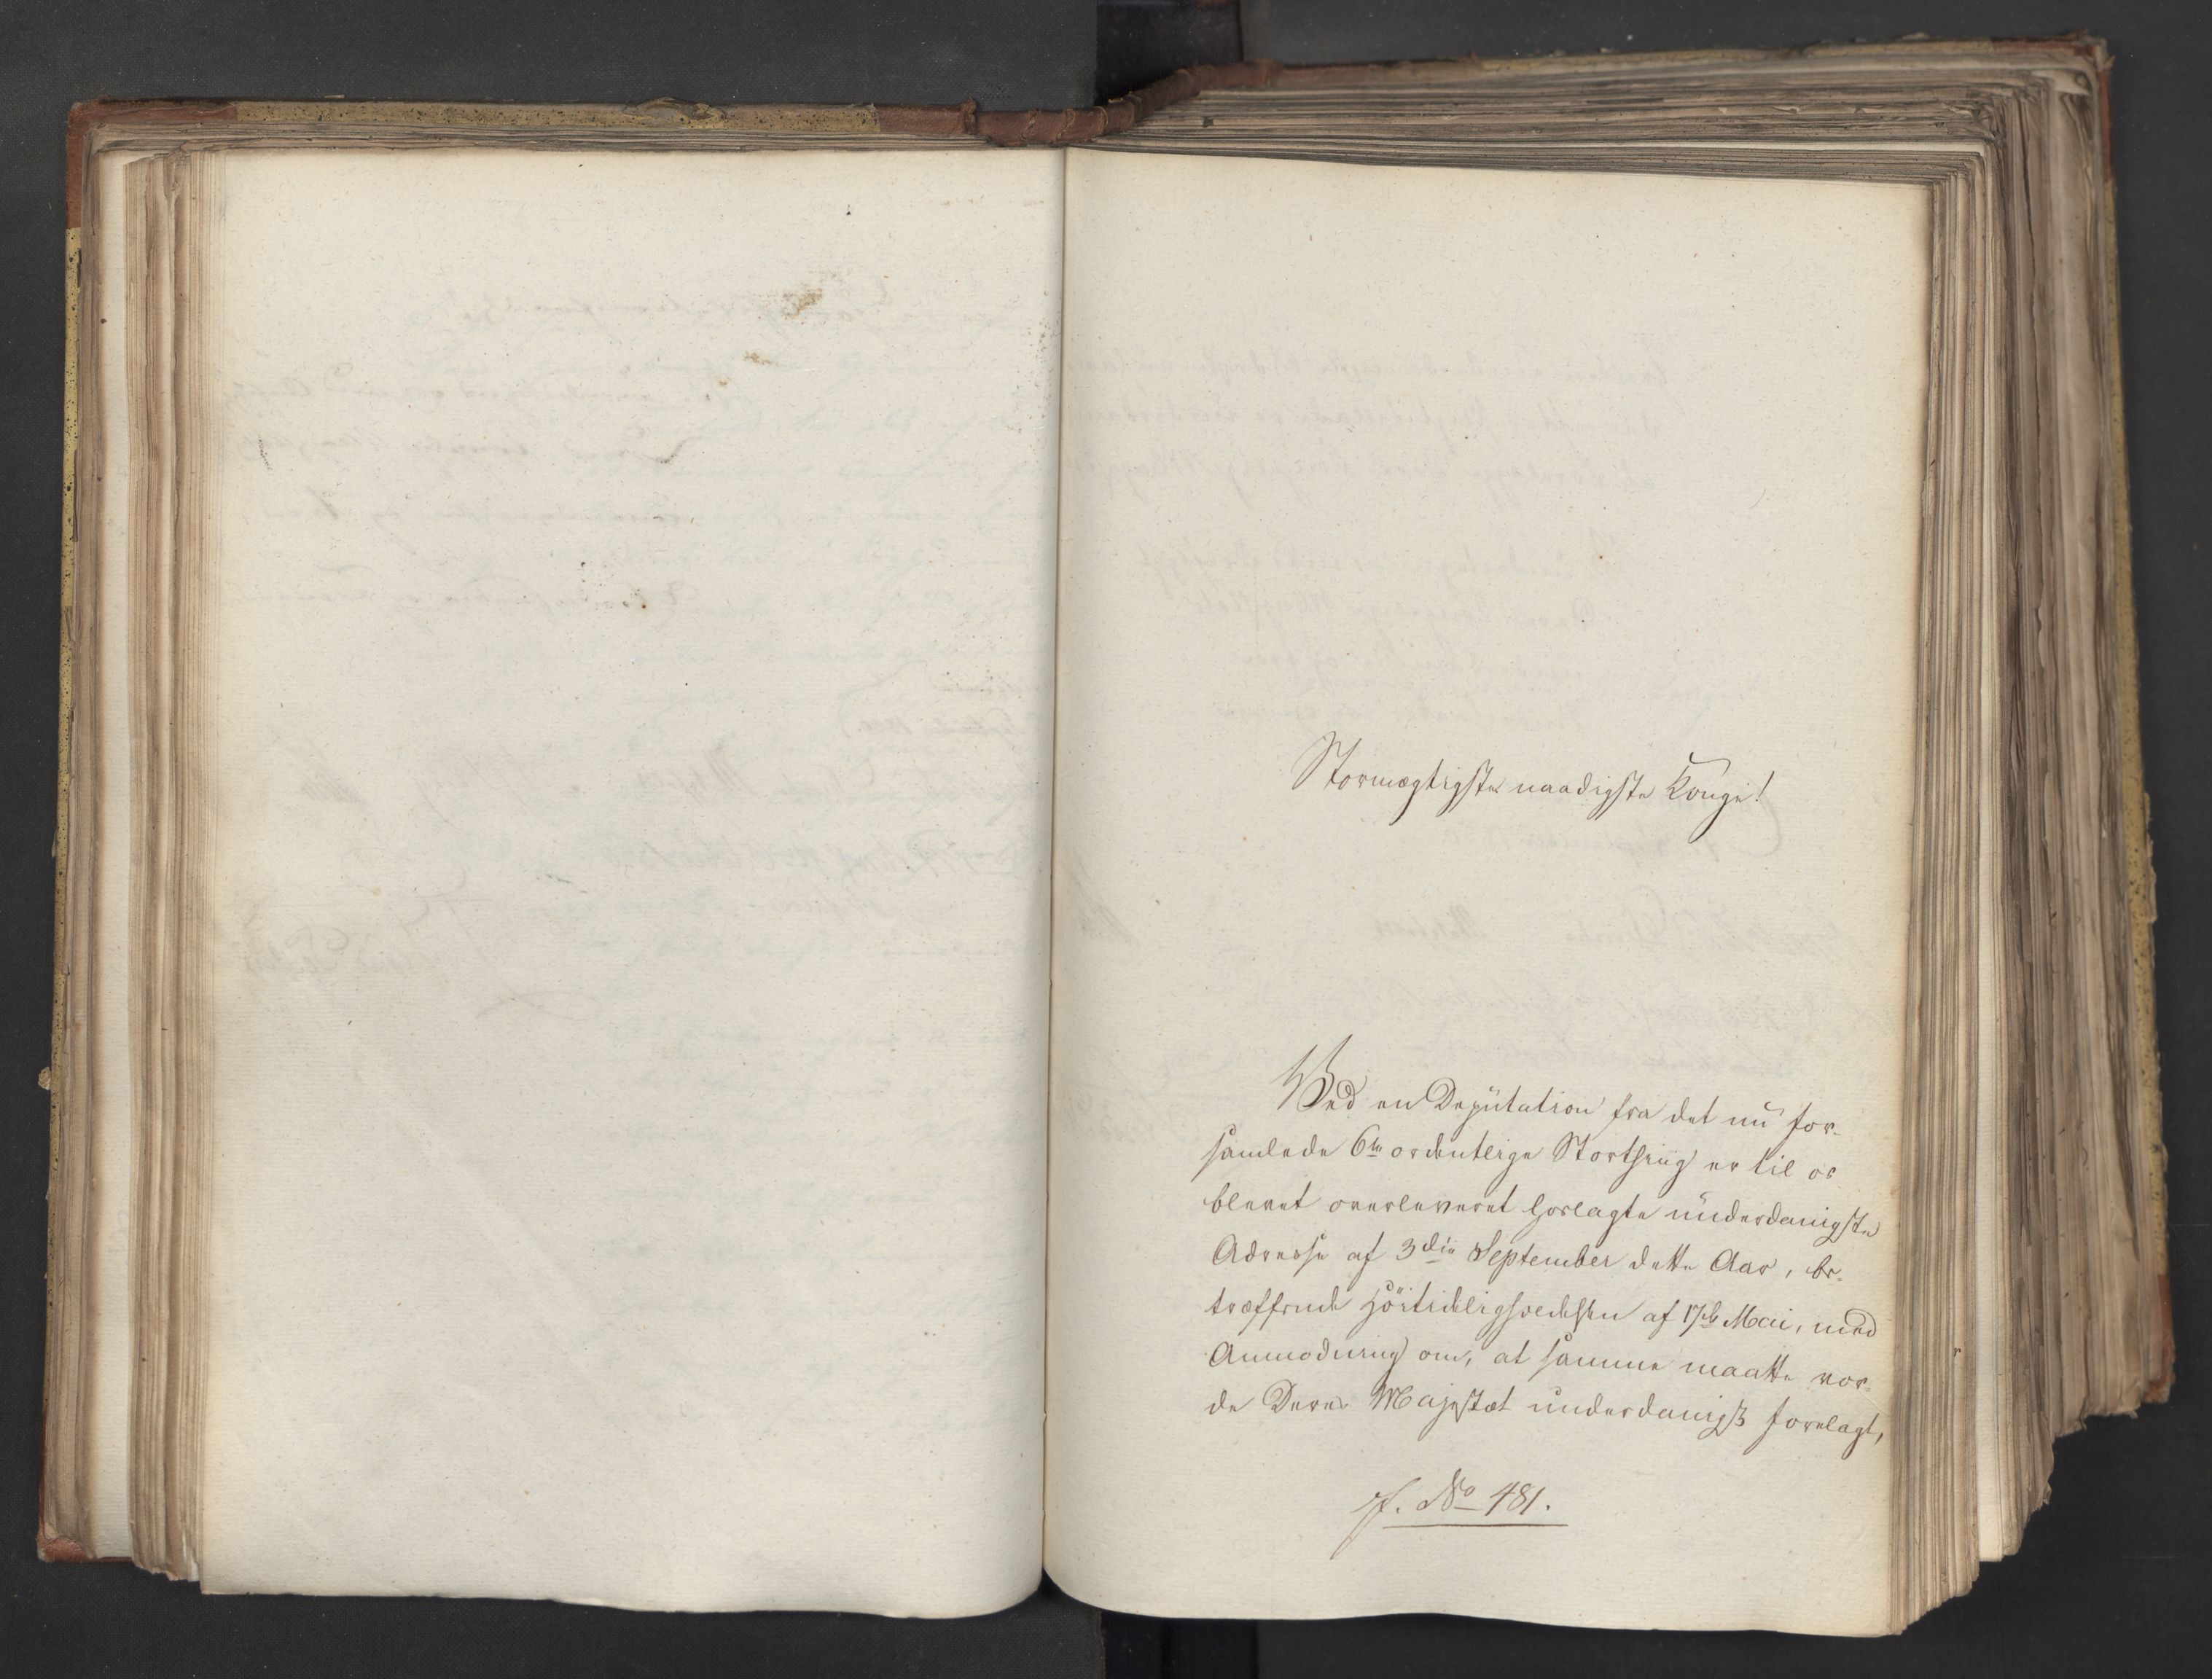 Stormægtigste naadigste Konge!
Ved en Deputation fra det nu for-
samlede 6te ordentlige Storthing er til os
blevet overleveret hoslagte underdanigste
Adresse af 3die September dette Aar, be-
træffende Höitideligholdelsen af 17de Mai, med
Anmodning om, at samme maatte vor-
de Deres Majestæt underdanigst forelagt,
No 481.